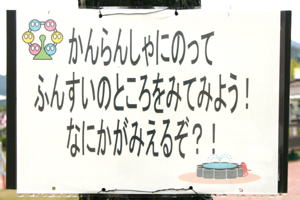 かんらんしゃにのって
ふんすいのところをみてみよう！
なにかがみえるぞ？！